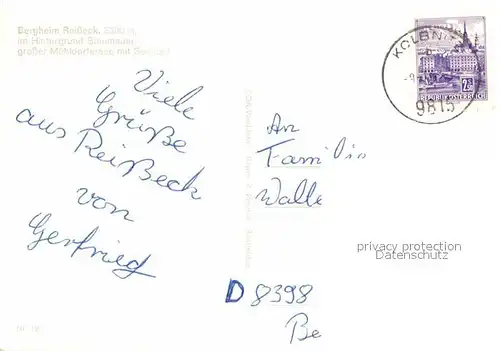 Bergheim Reißeck,
im Hintergrund
großer Mühldorfersee mit
Viele
Grüße
aus Reißeck
von
Gerfried
KOLBN
9815
REPUBLIK ÖSTERREICH
An
Familie
Walle
D 8398
Be
privacy protection
Datenschutz